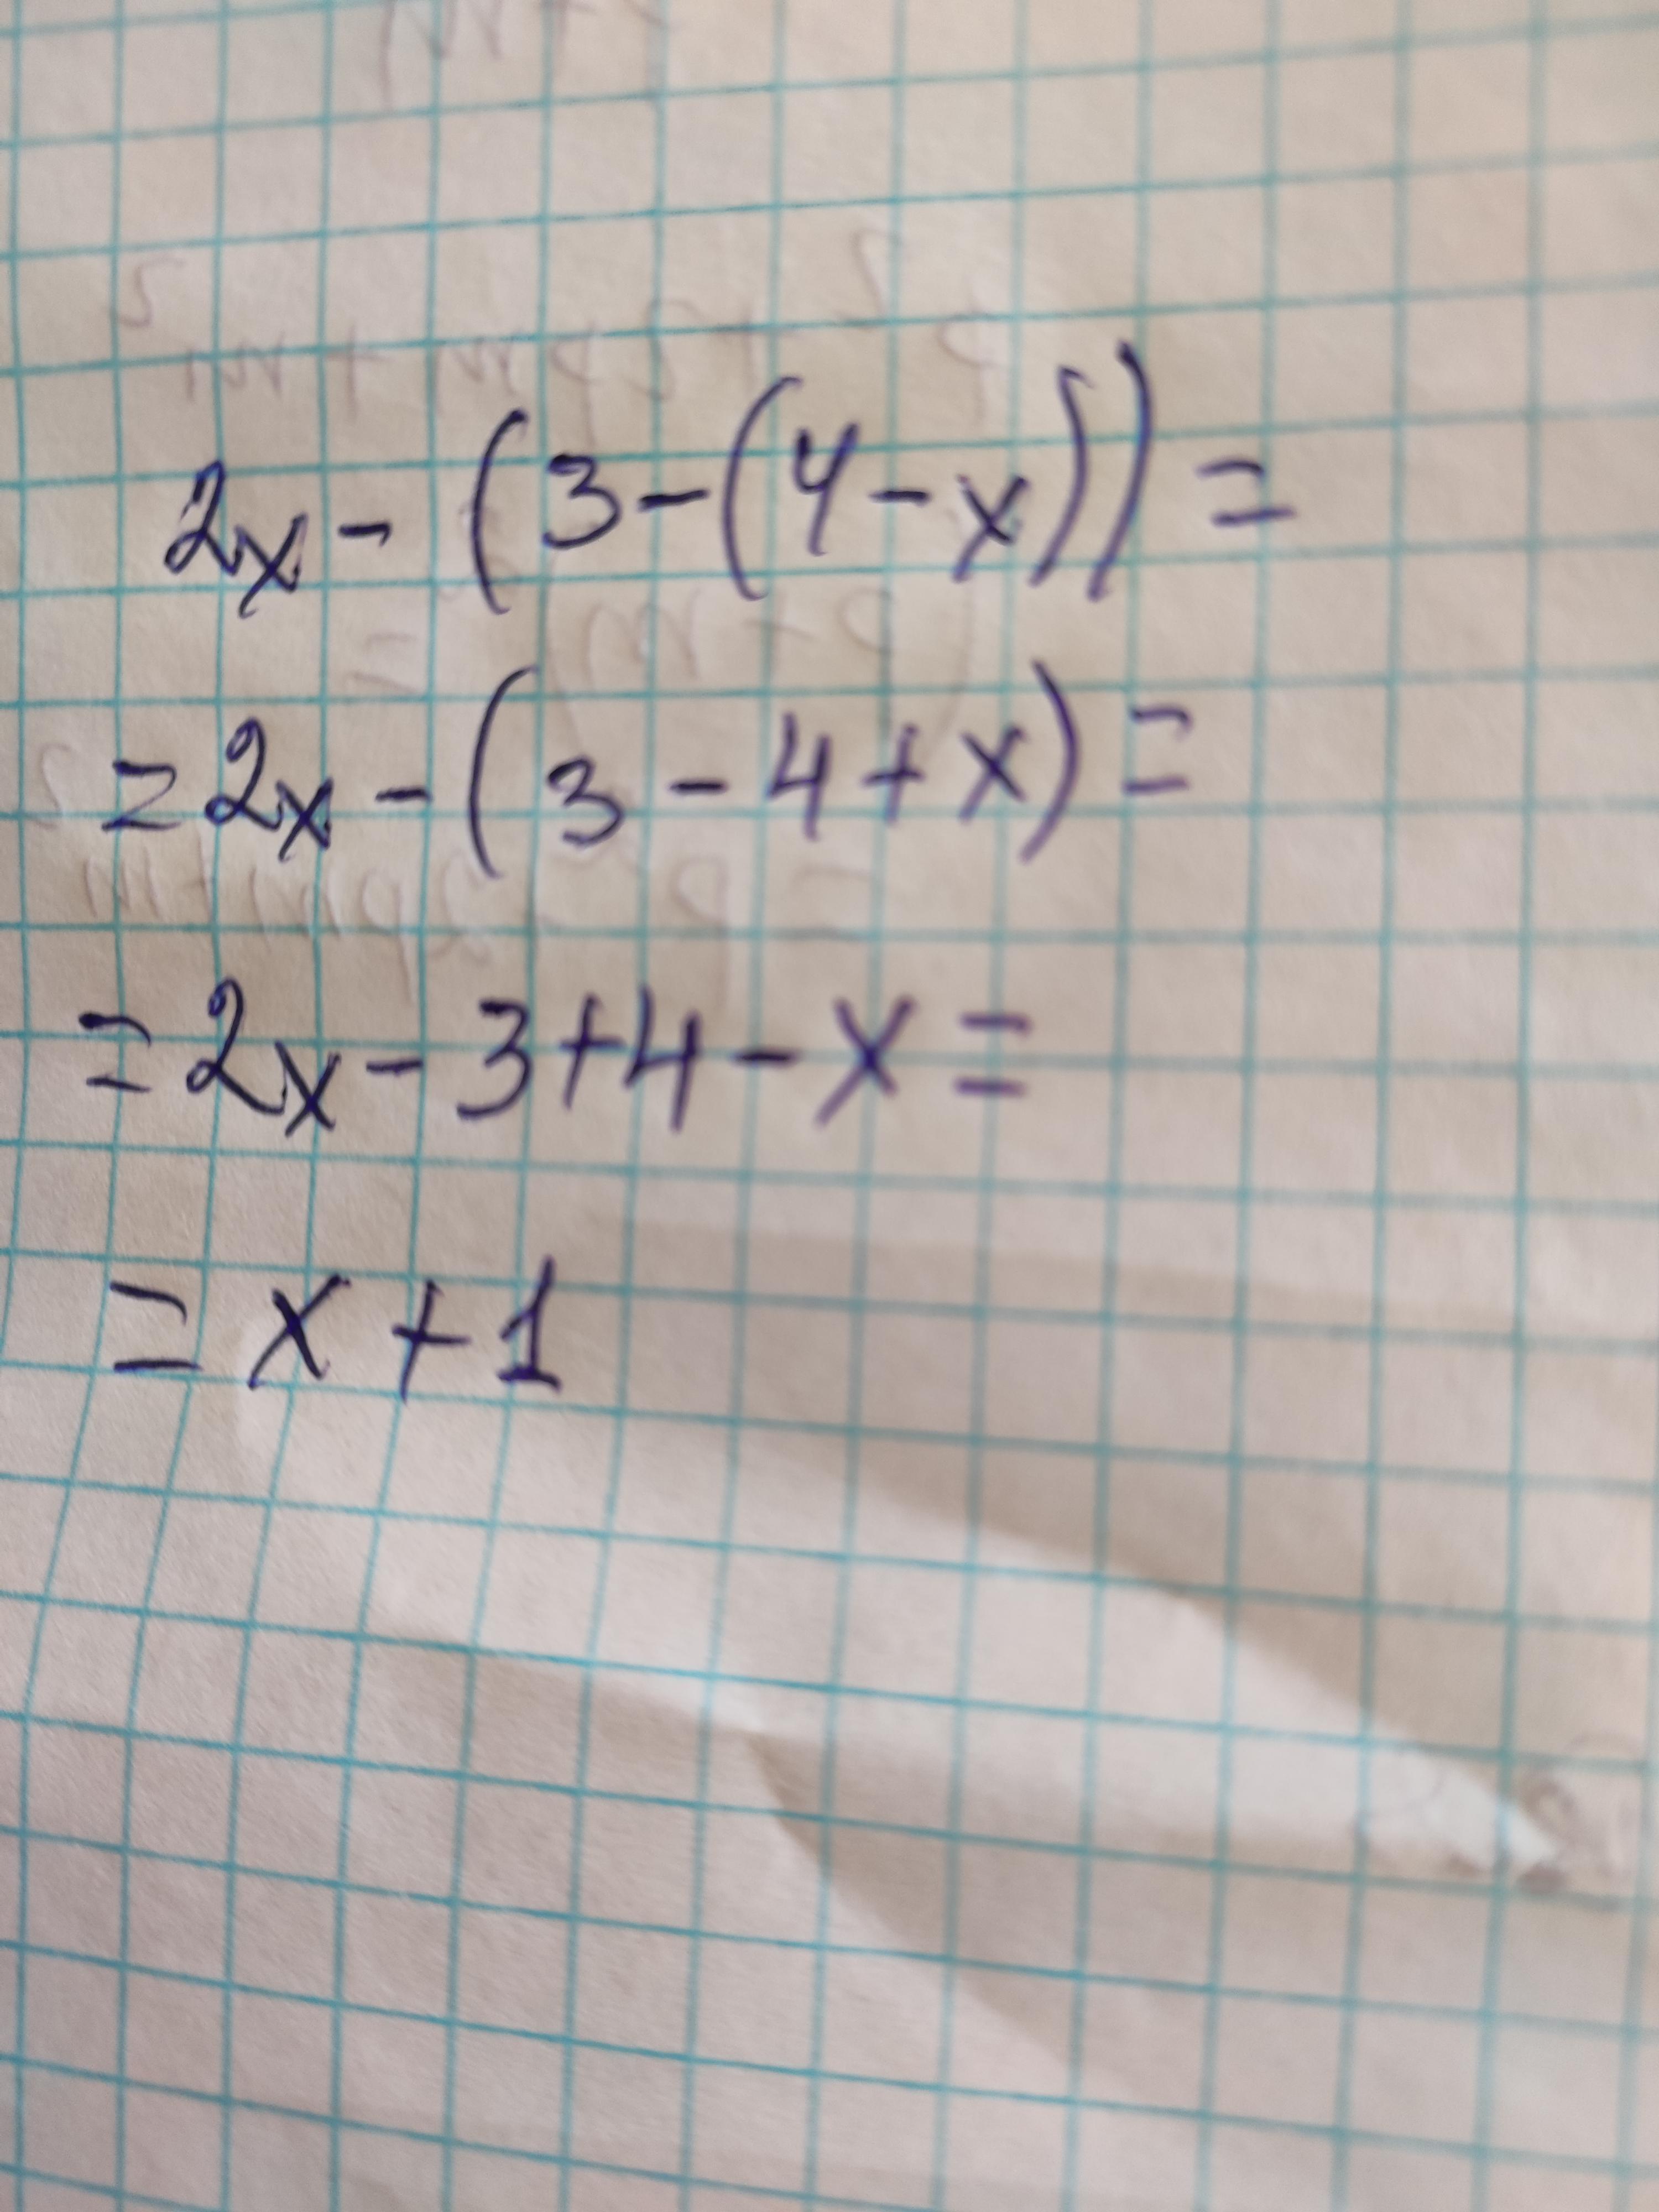 2x - (3 - (4 - x)) =
= 2x - (3 - 4 + x) =
= 2x - 3 + 4 - x =
= x + 1